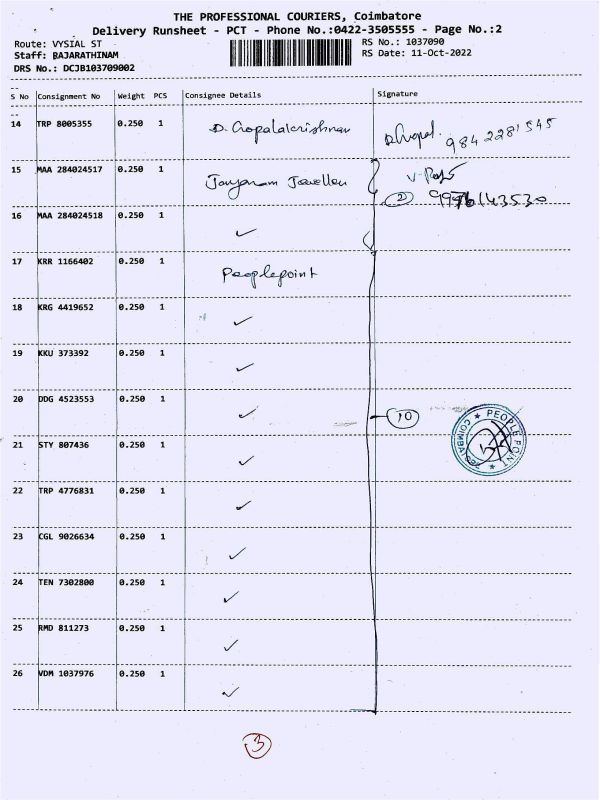 THE PROFESSIONAL COURIERS, Coimbatore
Delivery Runsheet - PCT - Phone No.:0422-3505555 - Page No.:2
Route: VYSIAL ST RS No.: 1037090
Staff: BAJARATHINAM RS Date: 11-Oct-2022
DRS No.: DCJB103709002
S No Consignment No Weight PCS Consignee Details Signature
14 TRP 8005355 0.250 1 D. Gopalakrishnan D.Gopal. 984 2281545
15 MAA 284024517 0.250 1 Jewellers
2
16 MAA 284024518 0.250 1 ✓
17 KRR 1166402 0.250 1 Peoplepoint
18 KRG 4419652 0.250 1 ✓
19 KKU 373392 0.250 1 ✓
20 DDG 4523553 0.250 1 ✓ 10
PEOPLE POINT
21 STY 807436 0.250 1 ✓
22 TRP 4776831 0.250 1 ✓
23 CGL 9026634 0.250 1 ✓
24 TEN 7302800 0.250 1 ✓
25 RMD 811273 0.250 1 ✓
26 VDM 1037976 0.250 1 ✓
3